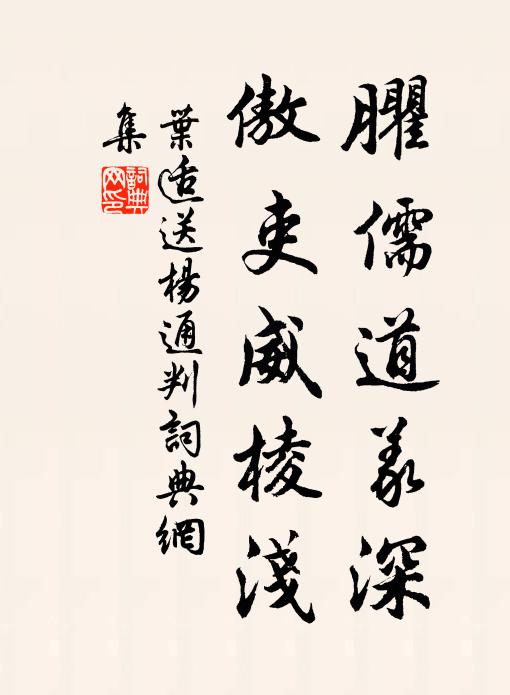 臞儒道義深
傲吏威棱淺
葉适送楊通判詞典網
集
詞典
网印